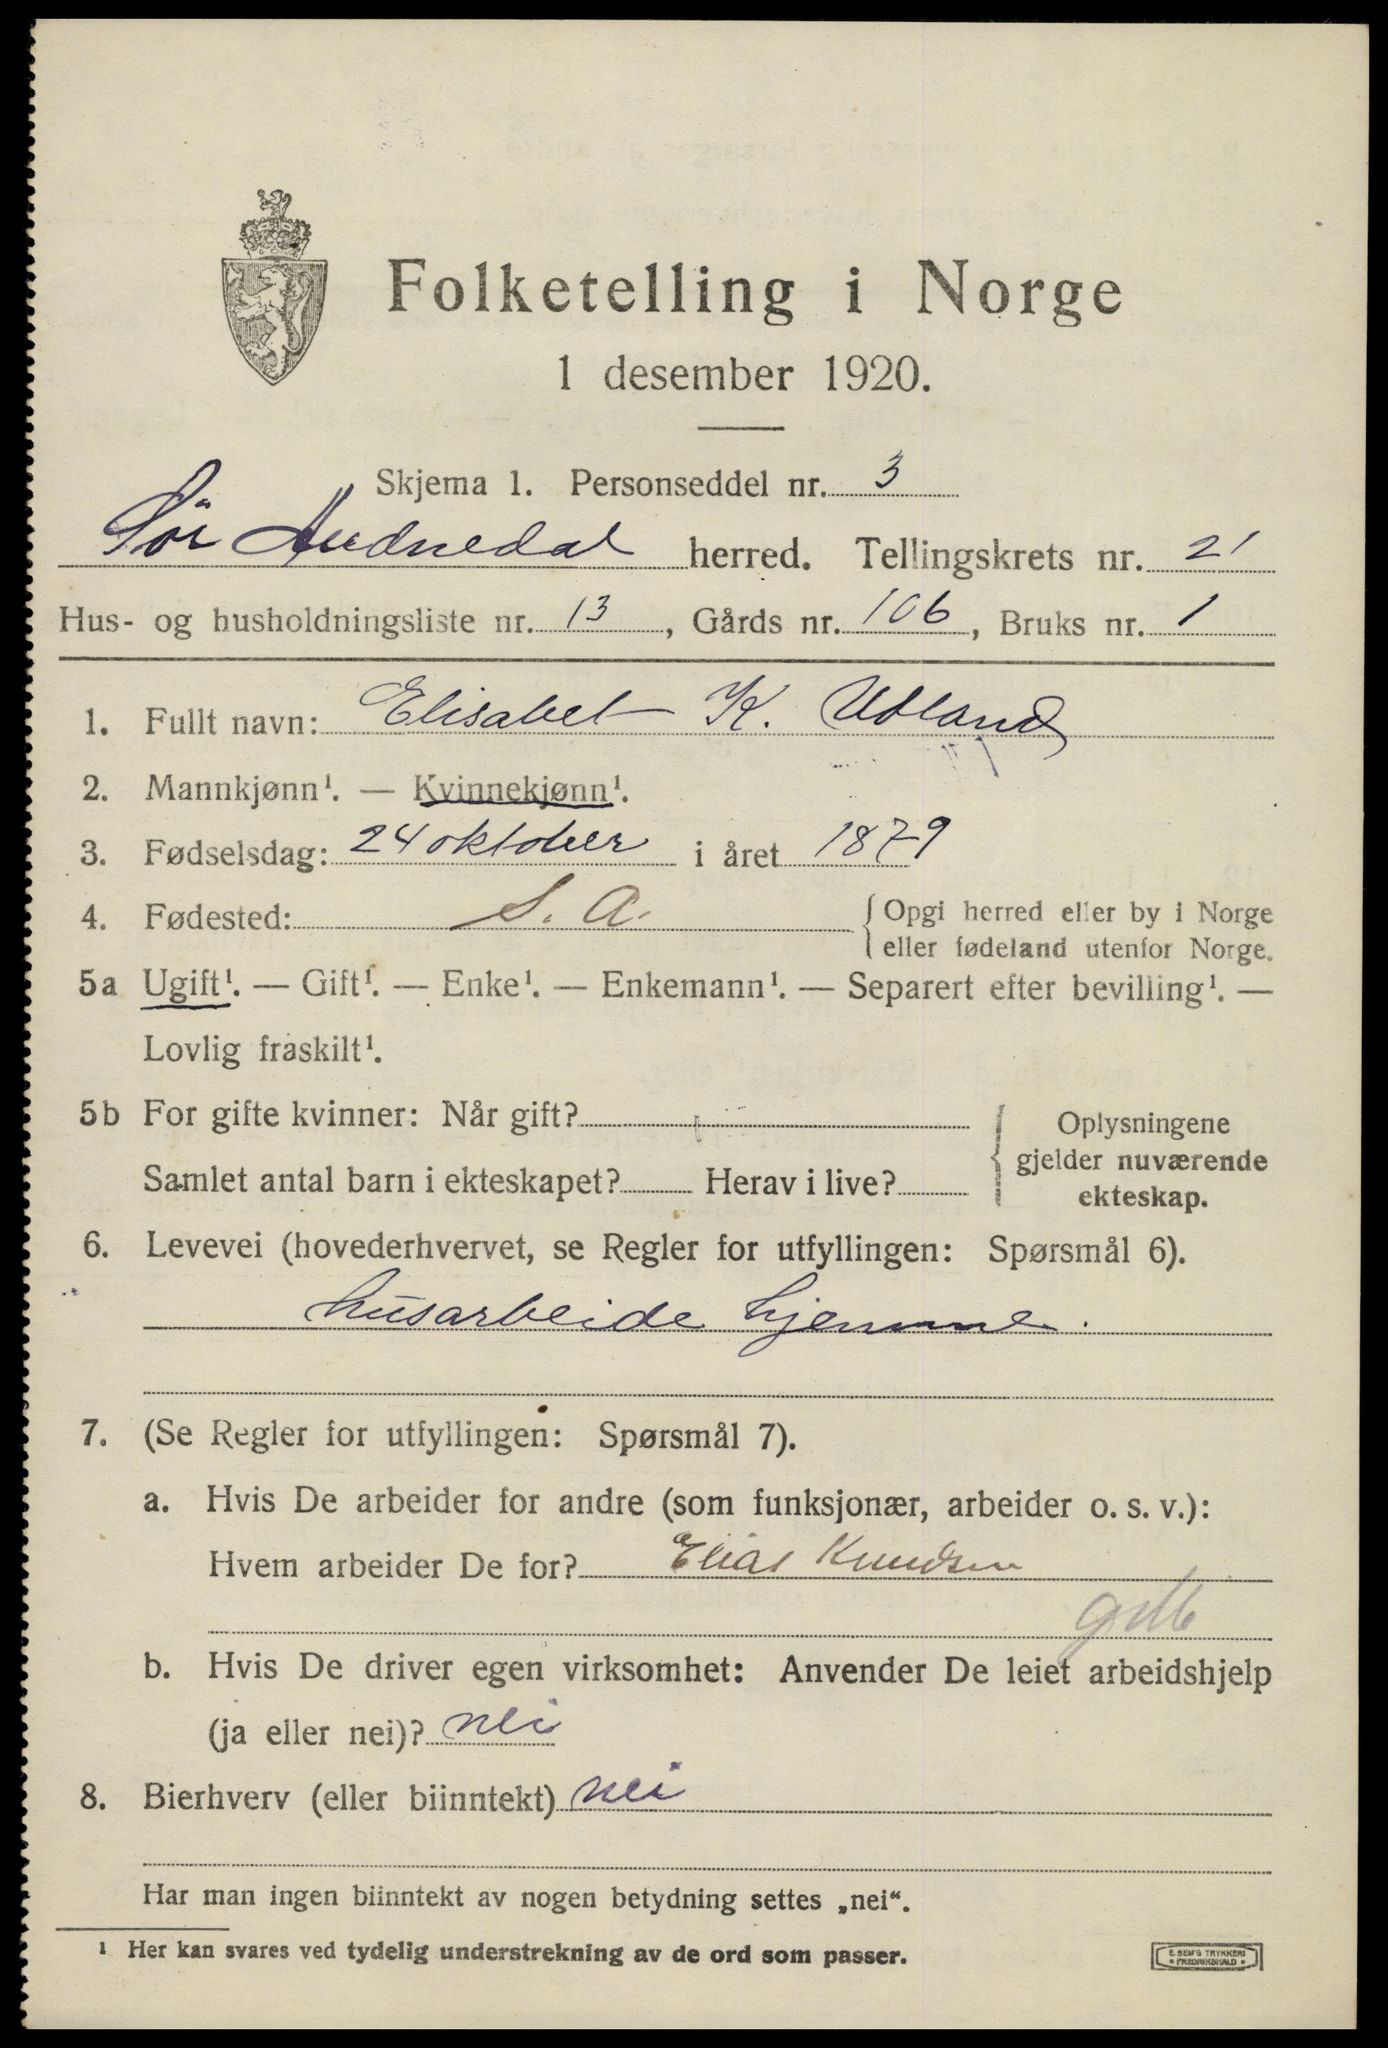 Folketelling i Norge
1 desember 1920.
Skjema 1. Personseddel nr. 3
Sör Audnedal herred. Tellingskrets nr. 21
Hus- og husholdningsliste nr. 13, Gårds nr. 106, Bruks nr. 1
1. Fullt navn: Elisabet K. Udland
2. Mannkjønn¹. — Kvinnekjønn¹.
3. Fødselsdag: 24 oktober i året 1879
4. Fødested: S. A. Opgi herred eller by i Norge
eller fødeland utenfor Norge.
5a Ugift¹. — Gift¹. — Enke¹. — Enkemann¹. — Separert efter bevilling¹. —
Lovlig fraskilt¹.
5b For gifte kvinner: Når gift?
Samlet antal barn i ekteskapet? Herav i live?
Oplysningene
gjelder nuværende
ekteskap.
6. Levevei (hovederhvervet, se Regler for utfyllingen: Spørsmål 6).
husarbeide hjemme.
7. (Se Regler for utfyllingen: Spørsmål 7).
a. Hvis De arbeider for andre (som funksjonær, arbeider o. s. v.):
Hvem arbeider De for? Elias Knudsen
b. Hvis De driver egen virksomhet: Anvender De leiet arbeidshjelp
(ja eller nei)? nei
8. Bierhverv (eller biinntekt) nei
Har man ingen biinntekt av nogen betydning settes „nei“.
¹ Her kan svares ved tydelig understrekning av de ord som passer.
E. SEM'S TRYKKERI
• FREDRIKSHALD •